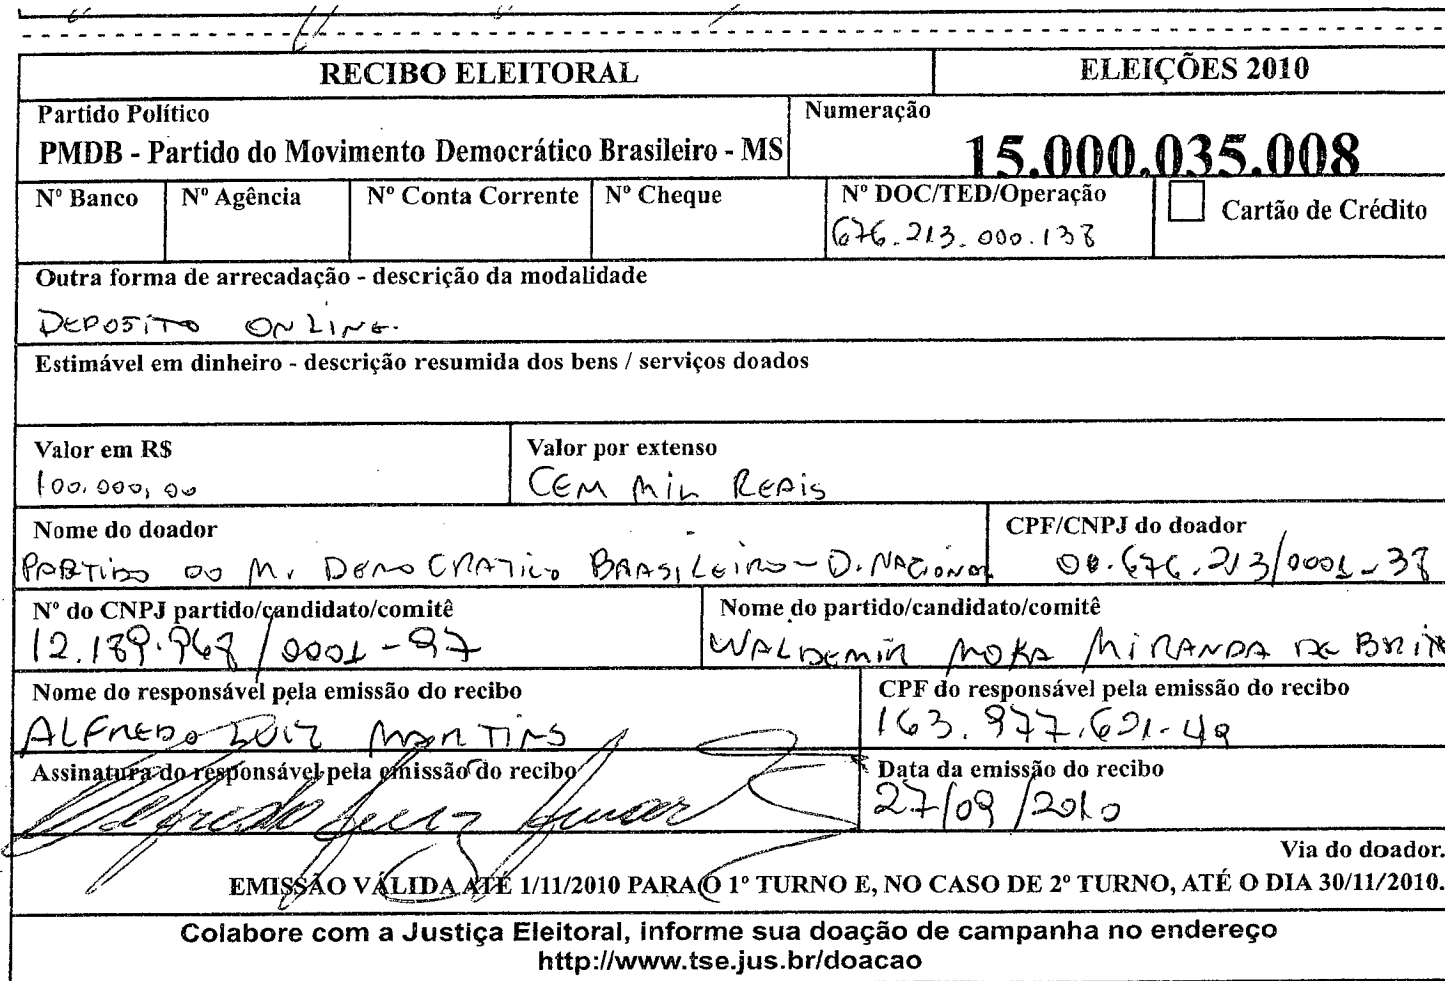 RECIBO ELEITORAL ELEIÇÕES 2010
Partido Político Numeração
PMDB - Partido do Movimento Democrático Brasileiro - MS 15.000.035.008
Nº Banco Nº Agência Nº Conta Corrente Nº Cheque Nº DOC/TED/Operação Cartão de Crédito
676.213.000.138
Outra forma de arrecadação - descrição da modalidade
DEPOSITO ON LINE.
Estimável em dinheiro - descrição resumida dos bens / serviços doados
Valor em R$ Valor por extenso
100.000,00 CEM MIL REAIS
Nome do doador CPF/CNPJ do doador
PARTIDO DO M. DEMOCRATICO BRASILEIRO - D. NACIONAL 00.676.213/0001-38
Nº do CNPJ partido/candidato/comitê Nome do partido/candidato/comitê
12.189.968/0001-97 WALDEMIR MOKA MIRANDA DE BRITO
Nome do responsável pela emissão do recibo CPF do responsável pela emissão do recibo
ALFREDO LUIZ MARTINS 163.977.621-49
Assinatura do responsável pela emissão do recibo Data da emissão do recibo
27/09/2010
Via do doador.
EMISSÃO VÁLIDA ATÉ 1/11/2010 PARA O 1º TURNO E, NO CASO DE 2º TURNO, ATÉ O DIA 30/11/2010.
Colabore com a Justiça Eleitoral, informe sua doação de campanha no endereço
http://www.tse.jus.br/doacao